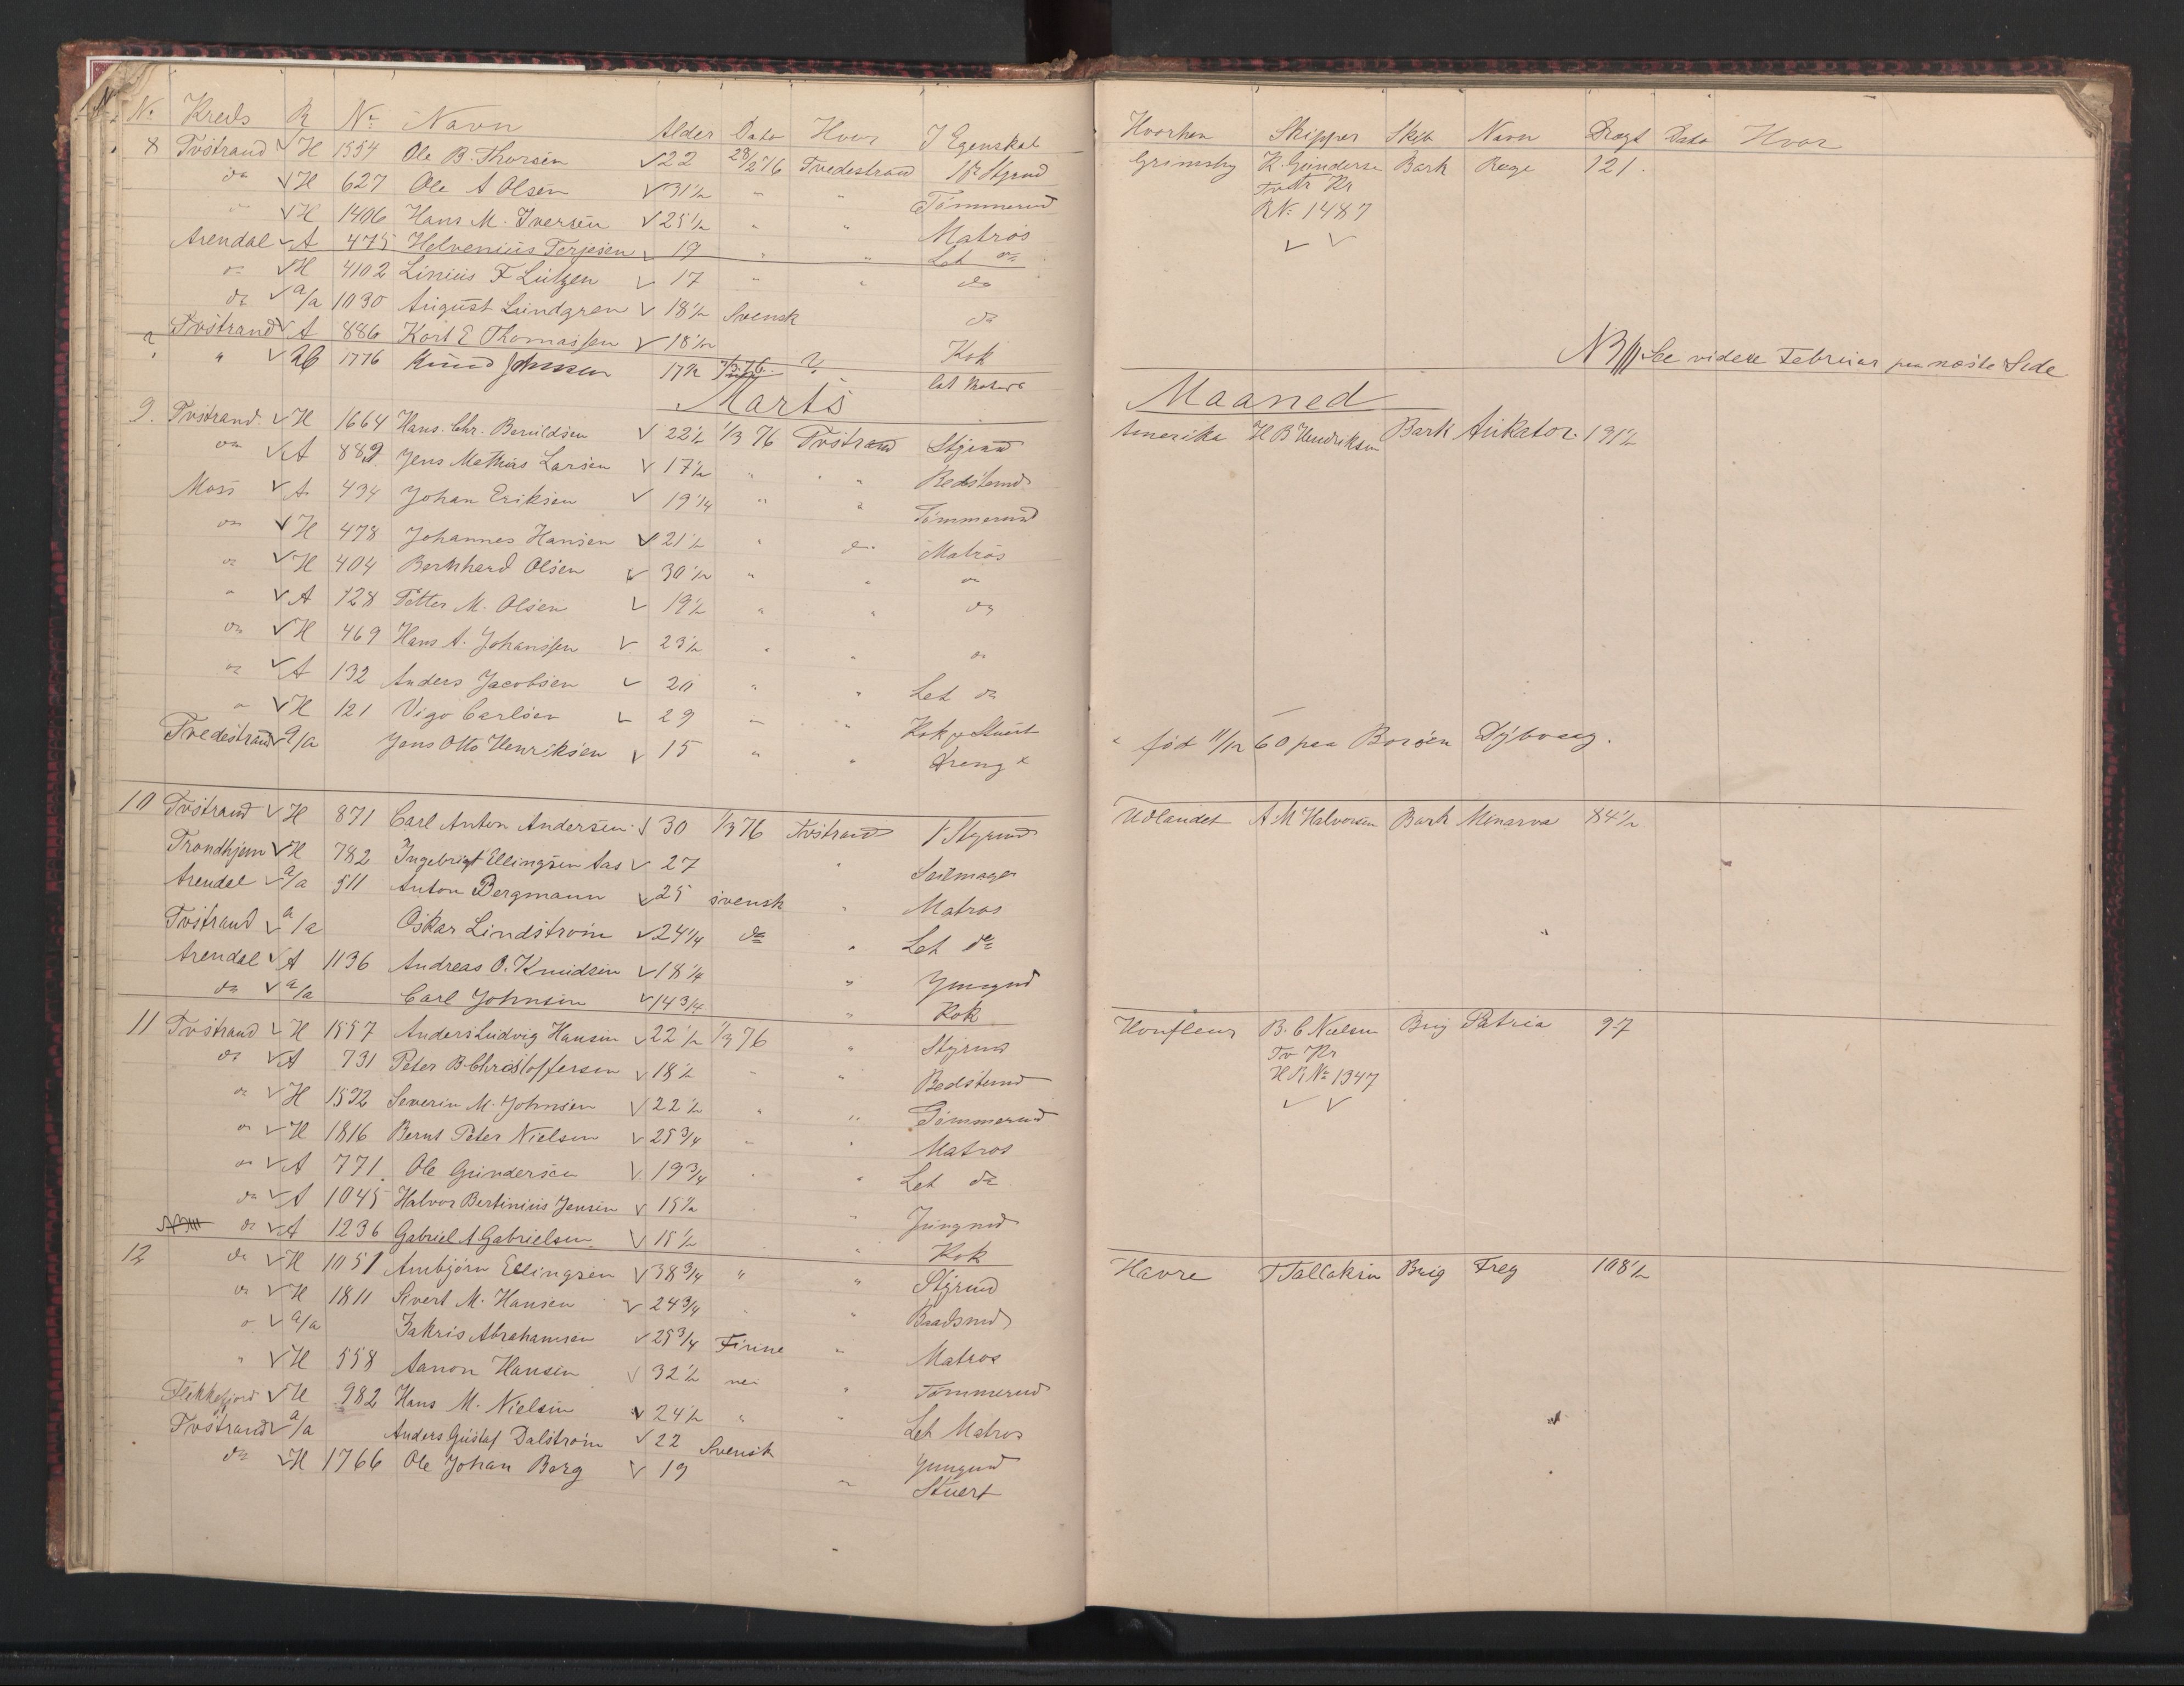 No Kreds R No Navn Alder Dato Hvor I Egenskab Hvorhen Skipper Skib Navn Drægt Dato Hvor
8 Tvstrand H 1554 Ole B. Thorsen 22 28/2 76 Tvedestrand Styrmd Grimsby K. Gundersen Bark Rege 121.
do H 627 Ole A Olsen 31½ " " Tømmermd Tvstr Kr
" H 1406 Hans M. Iversen 25½ " " Matros R No 1487
Arendal A 475 Helvenius Terjesen 19 " " Let do
do H 4102 Linius F Lützen 17 " " do
do a/a 1030 August Lundgren 18½ Svensk do
Tvstrand A 886 Kort E Thomassen 18½ Kok
? " 1776 Knud Johnsen 17½ ? Let Matros
NB See videre Februar paa næste Side
Marts Maaned
9. Tvstrand H 1664 Hans Chr. Beruldsen 22½ 1/3 76 Tvstrand Styrmd Amerika H B Hendriksen Bark Aukator 191½
do A 889 Jens Mathias Larsen 17½ " " Bedstemd
Moss A 434 Johan Eriksen 19¼ " " Tømmermd
do H 478 Johannes Hansen 21½ " do Matros
do H 404 Bernhard Olsen 30½ " " do
" A 128 Petter M. Olsen 19½ " " do
do H 469 Hans A. Johanssen 23½ " " do
do A 132 Anders Jacobsen 20 " " Let do
do H 121 Vigo Carlsen 29 " " Kok & Stuert
Tvedestrand a/a Jens Otto Henriksen 15 " " Dreng x " fød 11/12 60 paa Borøen Dybvaag.
10 Tvstrand H 871 Carl Anton Andersen 30 1/3 76 Tvstrand 1' Styrmd Udlandet A M Halvorsen Bark Minarva 84½
Trondhjem H 782 Ingebrigt Ellingsen Aas 27 " Seilmager
Arendal a/a 511 Anton Bergmann 25 svensk " Matros
Tvstrand a/a Oskar Lindstrøm 24¼ do " Let do
Arendal A 1136 Andreas O. Knudsen 18¼ " Jungmd
do a/a Carl Johnsen 14¾ " Kok
11 Tvstrand H 1557 Anders Ludvig Hansen 22½ 1/3 76 " Styrmd Honfleur B. C Nielsen Brig Patria 97
do A 731 Peter B. Christoffersen 18½ " " Bedstemd Tv Kr
do H 1592 Severin M. Johnsen 22½ " " Tømmermd H R No 1347
do H 1816 Bernt Peter Nielsen 25¾ " " Matros
do A 771 Ole Gundersen 19¾ " " Let do
do A 1045 Halvor Bertinius Jensen 15½ " Jungmd
do A 1236 Gabriel A Gabrielsen 15½ " Kok
12 do H 1051 Anbjørn Ellingsen 38¾ " " Styrmd Havre T Tallaksen Brig Freg 108½
do H 1811 Sivert M. Hansen 24¾ " Baadsmd
do a/a Zakris Abrahamsen 25¾ Finne " Matros
" H 558 Aanon Hansen 32½ nei " Tømmermd
Flekkefjord H 982 Hans M. Nielsen 24½ " " Let Matros
Tvstrand a/a Anders Gustaf Dalstrøm 22 Svensk Jungmd
do H 1766 Ole Johan Borg 19 " Stuert